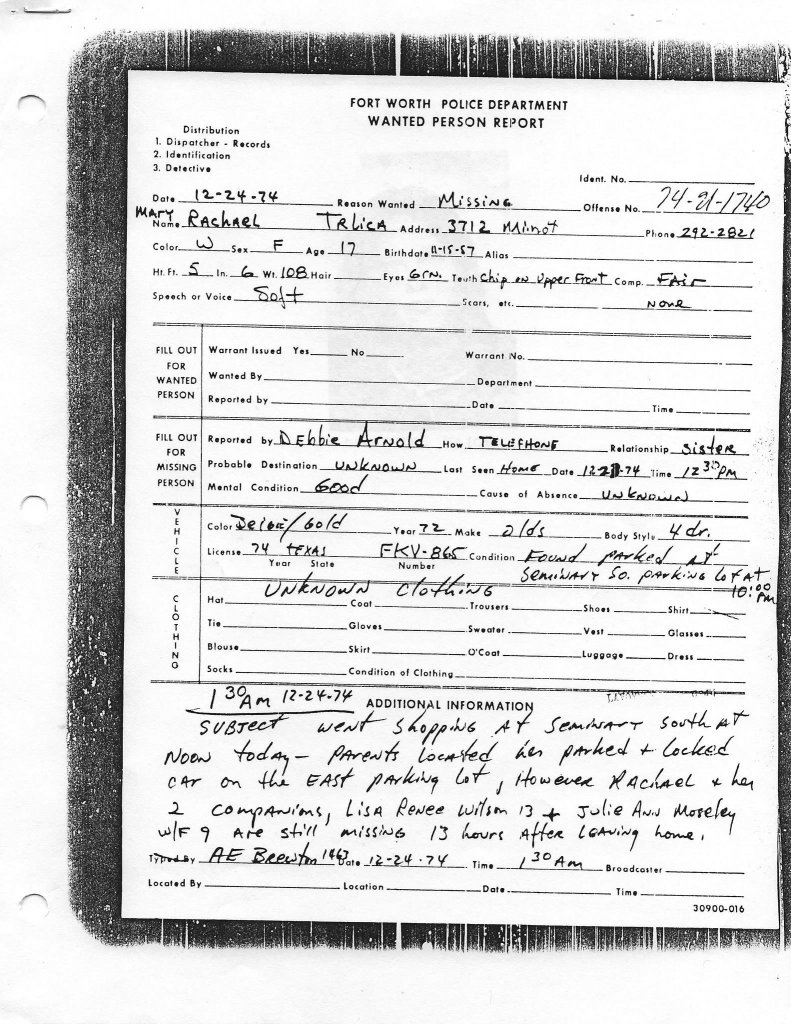 FORT WORTH POLICE DEPARTMENT
WANTED PERSON REPORT
Distribution
1. Dispatcher - Records
2. Identification
3. Detective
Ident. No.
Date 12-24-74 Reason Wanted Missing Offense No. 74-91-1740
Name MARY RACHAEL TRLICA Address 3712 Minot Phone 292-2821
Color W Sex F Age 17 Birthdate 11-15-57 Alias
Ht. Ft. 5 In. 6 Wt. 108 Hair Eyes Grn. Teeth Chip on Upper Front Comp. FAir
Speech or Voice Soft Scars, etc. None
FILL OUT FOR WANTED PERSON
Warrant Issued Yes No Warrant No.
Wanted By Department
Reported by Date Time
FILL OUT FOR MISSING PERSON
Reported by Debbie Arnold How TELEPHONE Relationship Sister
Probable Destination UNKNOWN Last Seen Home Date 12-23-74 Time 12 30 PM
Mental Condition Good Cause of Absence UNKNOWN
VEHICLE
Color Beige/Gold Year 72 Make Olds Body Style 4 dr.
License 74 TEXAS FKV-865 Condition Found parked at
Year State Number Seminary So. parking lot AT
10:00 PM
CLOTHING
UNKNOWN Clothing
Hat Coat Trousers Shoes Shirt
Tie Gloves Sweater Vest Glasses
Blouse Skirt O'Coat Luggage Dress
Socks Condition of Clothing
1 30 AM 12-24-74 ADDITIONAL INFORMATION
SUBJECT went shopping at Seminary South At
Noon today - Parents located her parked + locked
car on the EAST parking lot, However RACHAEL + her
2 companions, Lisa Renee Wilson 13 + Julie Ann Moseley
W/F 9 Are still missing 13 hours After leaving home.
Typed By AE Brewton 1463 Date 12-24-74 Time 1 30 AM Broadcaster
Located By Location Date Time
30900-016